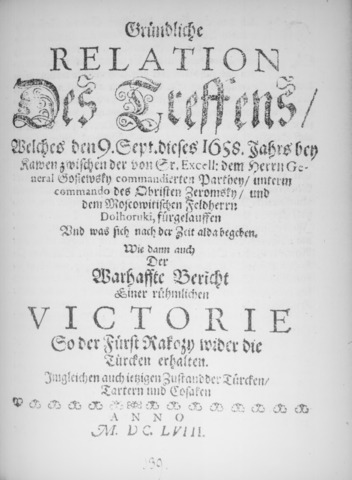 Gründliche
RELATION
Des Treffens/
Welches den 9. Sept. dieses 1658. Jahrs bey
Kawen zwischen der von Sr. Excell: dem Herrn Ge-
neral Gosiewsky commandierten Parthey/ unterm
commando des Obristen Zeromsky/ und
dem Moscowitischen Feldherrn
Dolhoruki, fürgelauffen
Und was sich nach der Zeit alda begeben.
Wie dann auch
Der
Warhaffte Bericht
Einer rühmlichen
VICTORIE
So der Fürst Rakozy wider die
Türcken erhalten.
Imgleichen auch ietzigen Zustand der Türcken/
Tartern und Cosaken
ANNO
M. DC. LVIII.